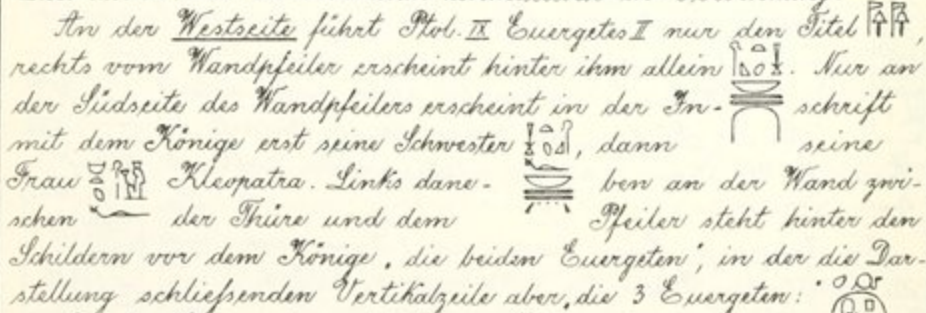 An der Westseite führt Ptol. IX Euergetes II nur den Titel
rechts vom Wandpfeiler erscheint hinter ihm allein . Nur an
der Südseite des Wandpfeilers erscheint in der In- schrift
mit dem Könige erst seine Schwester , dann seine
Frau Kleopatra. Links dane- ben an der Wand zwi-
schen der Thüre und dem Pfeiler steht hinter den
Schildern vor dem Könige „die beiden Euergeten“, in der die Dar-
stellung schließenden Vertikalzeile aber „die 3 Euergeten:“